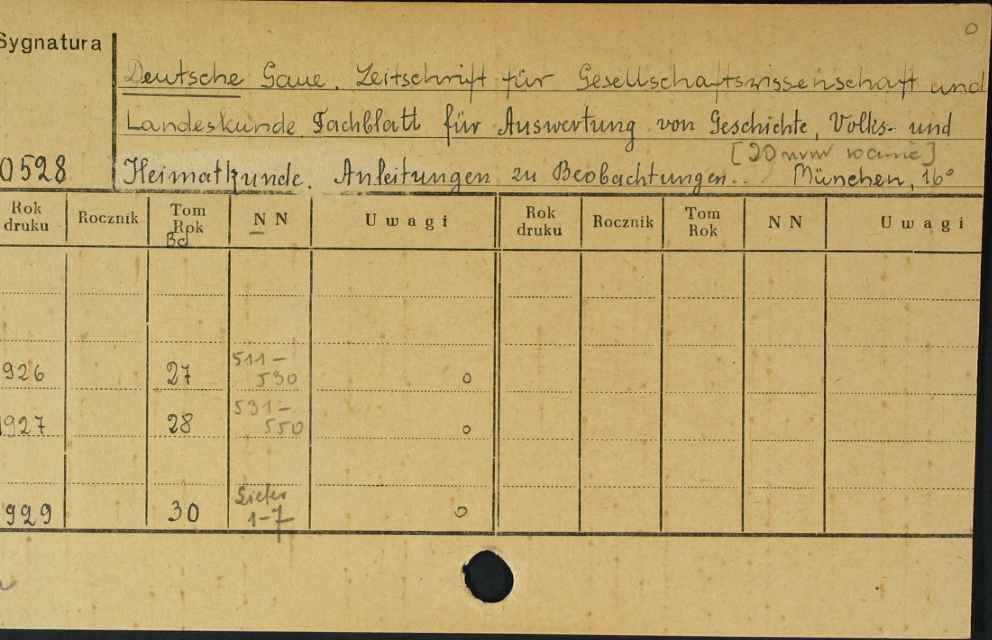 Sygnatura
Deutsche Gaue. Zeitschrift für Gesellschaftswissenschaft und
Landeskunde. Fachblatt für Auswertung von Geschichte, Volks- und
[20 num w
0528 Heimatkunde. Anleitungen zu Beobachtungen... München, 16°
Rok druku Rocznik Tom Rok Bd N N Uwagi Rok druku Rocznik Tom Rok N N Uwagi
926 27 511-530 o
1927 28 531-550 o
929 30 Liefer 1-7 o